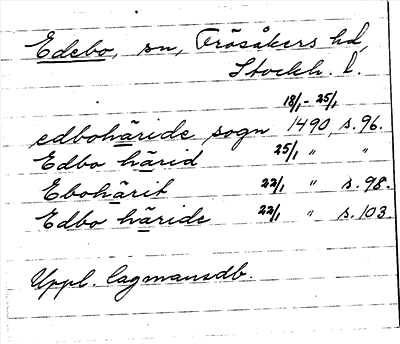 Edebo, sn, Frösåkers hd,
Stockh. l.
18/1 - 25/1
edbohäride sogn 1490, s. 96.
Edbo härid 25/1 " "
Ebohärit 22/1 " s. 98.
Edbo häride 22/1 " s. 103.
Uppl. lagmansdb.